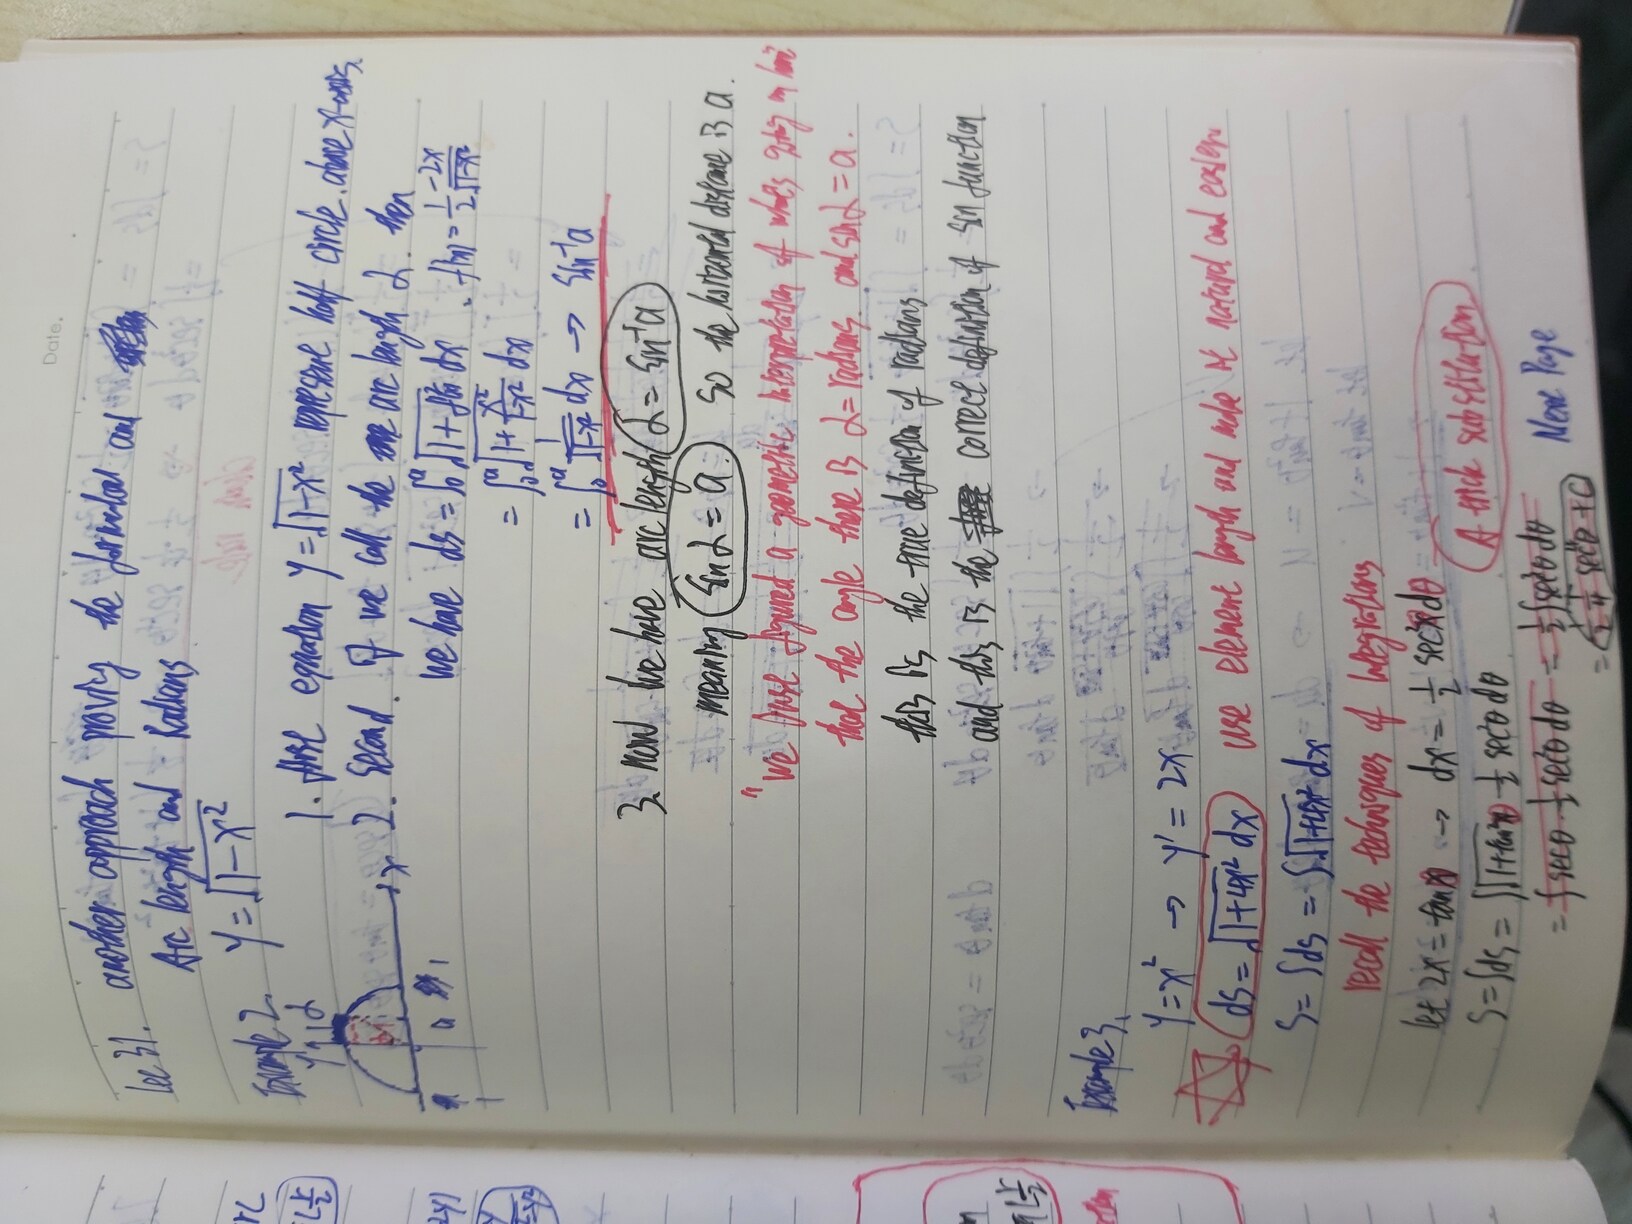 Date.
Lec 31. another approach proving the formulal and
Arc length and Radians
Example 2. y = √(1-x²)
1. first equation y = √(1-x²) represent half circle. above x-axis.
2. second. if we call the arc length α. then
we have ds = ∫₀ᵃ √(1+f'²(x)) dx . f'(x) = 1/2 -2x/√(1-x²)
= ∫₀ᵃ √(1+ x²/(1-x²)) dx
= ∫₀ᵃ 1/√(1-x²) dx → sin⁻¹a
y α
x
a 1
3. now we have arc length α = sin⁻¹a
meaning sin α = a. so the horizontal distance is a.
"we just figured a geometric interpretation of what's going on here"
that the angle there is α = radians. and sin α = a.
this is the true definition of radians
and this is the correct definition of sin function
Example 3.
y = x² → y' = 2x
ds = √(1+4x²) dx use element length and make it natural and easier.
S = ∫ds = ∫√(1+4x²) dx
recall the techniques of integrations
let 2x = tanθ → dx = 1/2 sec²θ dθ
A trick substitution
S = ∫ds = ∫√(1+tan²θ) 1/2 sec²θ dθ
= ∫ secθ · 1/2 sec²θ dθ = 1/2 ∫ sec³θ dθ
= 1/2 1/4 sec⁴θ + C
Next Page